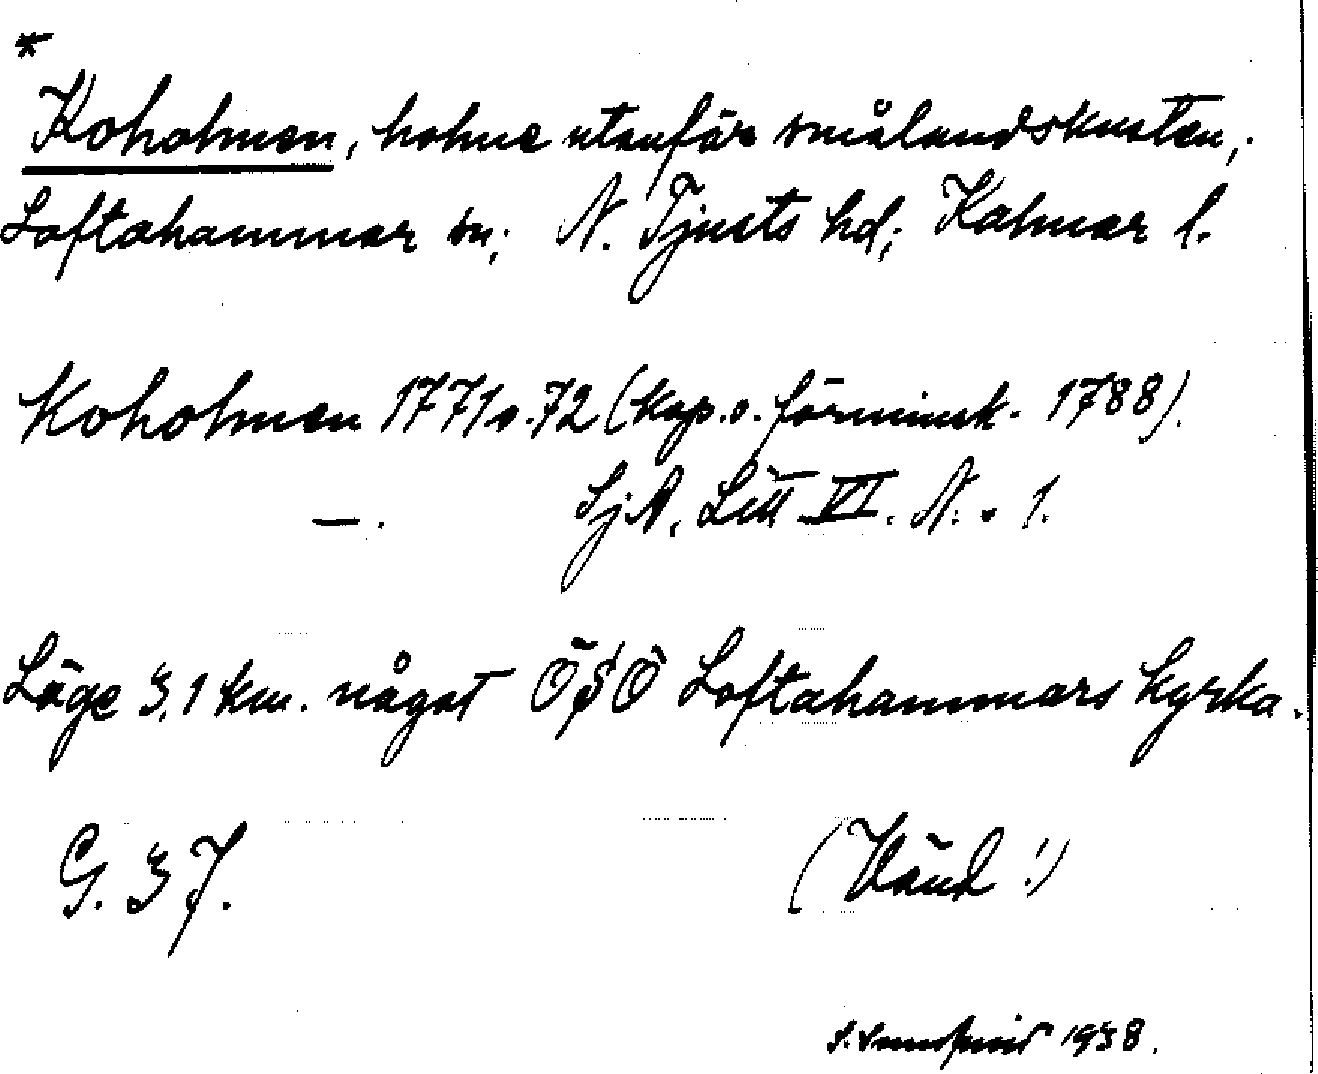 *
Koholmen, holme utanför smålandskusten,
Loftahammar sn; N. Tjusts hd; Kalmar l.
Koholmen 1771 o. 72 (kop. o. förminsk. 1788).
—. SjA, Litt VI. N:o 1.
Läge 3,1 km. något ÖSÖ Loftahammars kyrka.
G. 37.
(Vänd!)
1938.